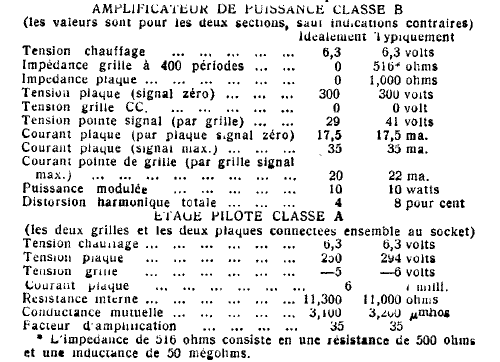 AMPLIFICATEUR DE PUISSANCE CLASSE B
(les valeurs sont pour les deux sections, sauf indications contraires)
Idéalement Typiquement
Tension chauffage ... ... ... ... ... 6,3 6,3 volts
Impédance grille à 400 périodes ... ... 0 516* ohms
Impedance plaque ... ... ... ... ... 0 1,000 ohms
Tension plaque (signal zéro) ... ... ... 300 300 volts
Tension grille CC. ... ... ... ... ... 0 0 volt
Tension pointe signal (par grille) ... ... 29 41 volts
Courant plaque (par plaque signal zéro) 17,5 17,5 ma.
Courant plaque (signal max.) ... ... ... 35 35 ma.
Courant pointe de grille (par grille signal
max.) ... ... ... ... ... ... ... 20 22 ma.
Puissance modulée ... ... ... ... ... 10 10 watts
Distorsion harmonique totale ... ... ... 4 8 pour cent
ETAGE PILOTE CLASSE A
(les deux grilles et les deux plaques connectées ensemble au socket)
Tension chauffage ... ... ... ... ... 6,3 6,3 volts
Tension plaque ... ... ... ... ... 250 294 volts
Tension grille ... ... ... ... ... —5 —6 volts
Courant plaque ... ... ... ... 6 7 milli.
Resistance interne ... ... ... ... ... 11,300 11,000 ohms
Conductance mutuelle ... ... ... ... ... 3,100 3,200 µmhos
Facteur d'amplification ... ... ... ... 35 35
* L'impedance de 516 ohms consiste en une résistance de 500 ohms
et une inductance de 50 mégohms.